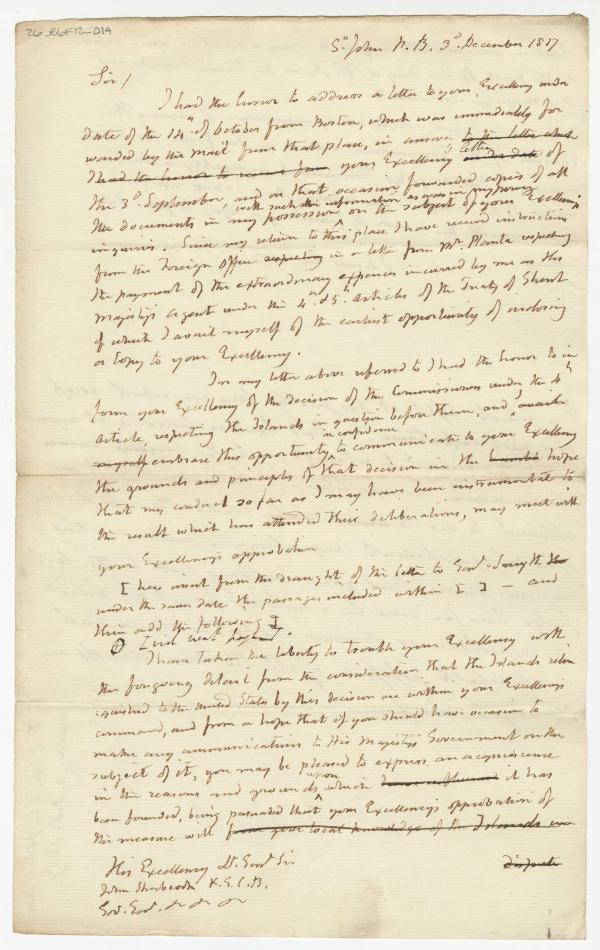 26_R6F12_D14
St. John N. B. 3d. December 1817
Sir /
I had the honor to address a letter to your Excellency under
date of the 14th. of October from Boston, which was immediately for
warded by the mail from that place, in answer to the letter which
I had the honor to receive from your Excellency's letter under date of
the 3d. September, and on that occasion forwarded copies of all
with such other information as was in my power
the documents in my possession on the subject of your Excellency's
inquiries. Since my return to this place I have received instructions
from the Foreign Office respecting in a letter from Mr. Planta respecting
the payment of the extraordinary expences incurred by me as His
Majesty's Agent under the 4th. & 5th. Articles of the Treaty of Ghent
of which I avail myself of the earliest opportunity of enclosing
a Copy to your Excellency.
In my letter above referred to I had the honor to in
form your Excellency of the decision of the Commissioners under the 4th
Article, respecting the Islands in question before them, and avail
in confidence
myself embrace this opportunity to communicate to your Excellency
the grounds and principles of that decision in the humble hope
that my conduct so far as I may have been instrumental to
the result which has attended their deliberations, may meet with
your Excellency's approbation
[ here insert from the draught of the letter to Genl. Smyth the
under the same date the passages included within [ ] — and
then add the following ]
I have taken the liberty to trouble your Excellency with
the foregoing detail from the consideration that the Islands relin
quished to the United States by this decision are within your Excellency's
command, and from a hope that if you should have occasion to
make any communications to His Majesty's Government on the
subject of it, you may be pleased to express an acquiescence
in the reasons and grounds upon which it has
been founded, being persuaded that your Excellency's approbation of
the measure will from your local knowledge of the Islands in
dispute
His Excellency Lt. Genl. Sir
John Sherbrooke K. G. C. B.
Gov. Genl. &c &c &c